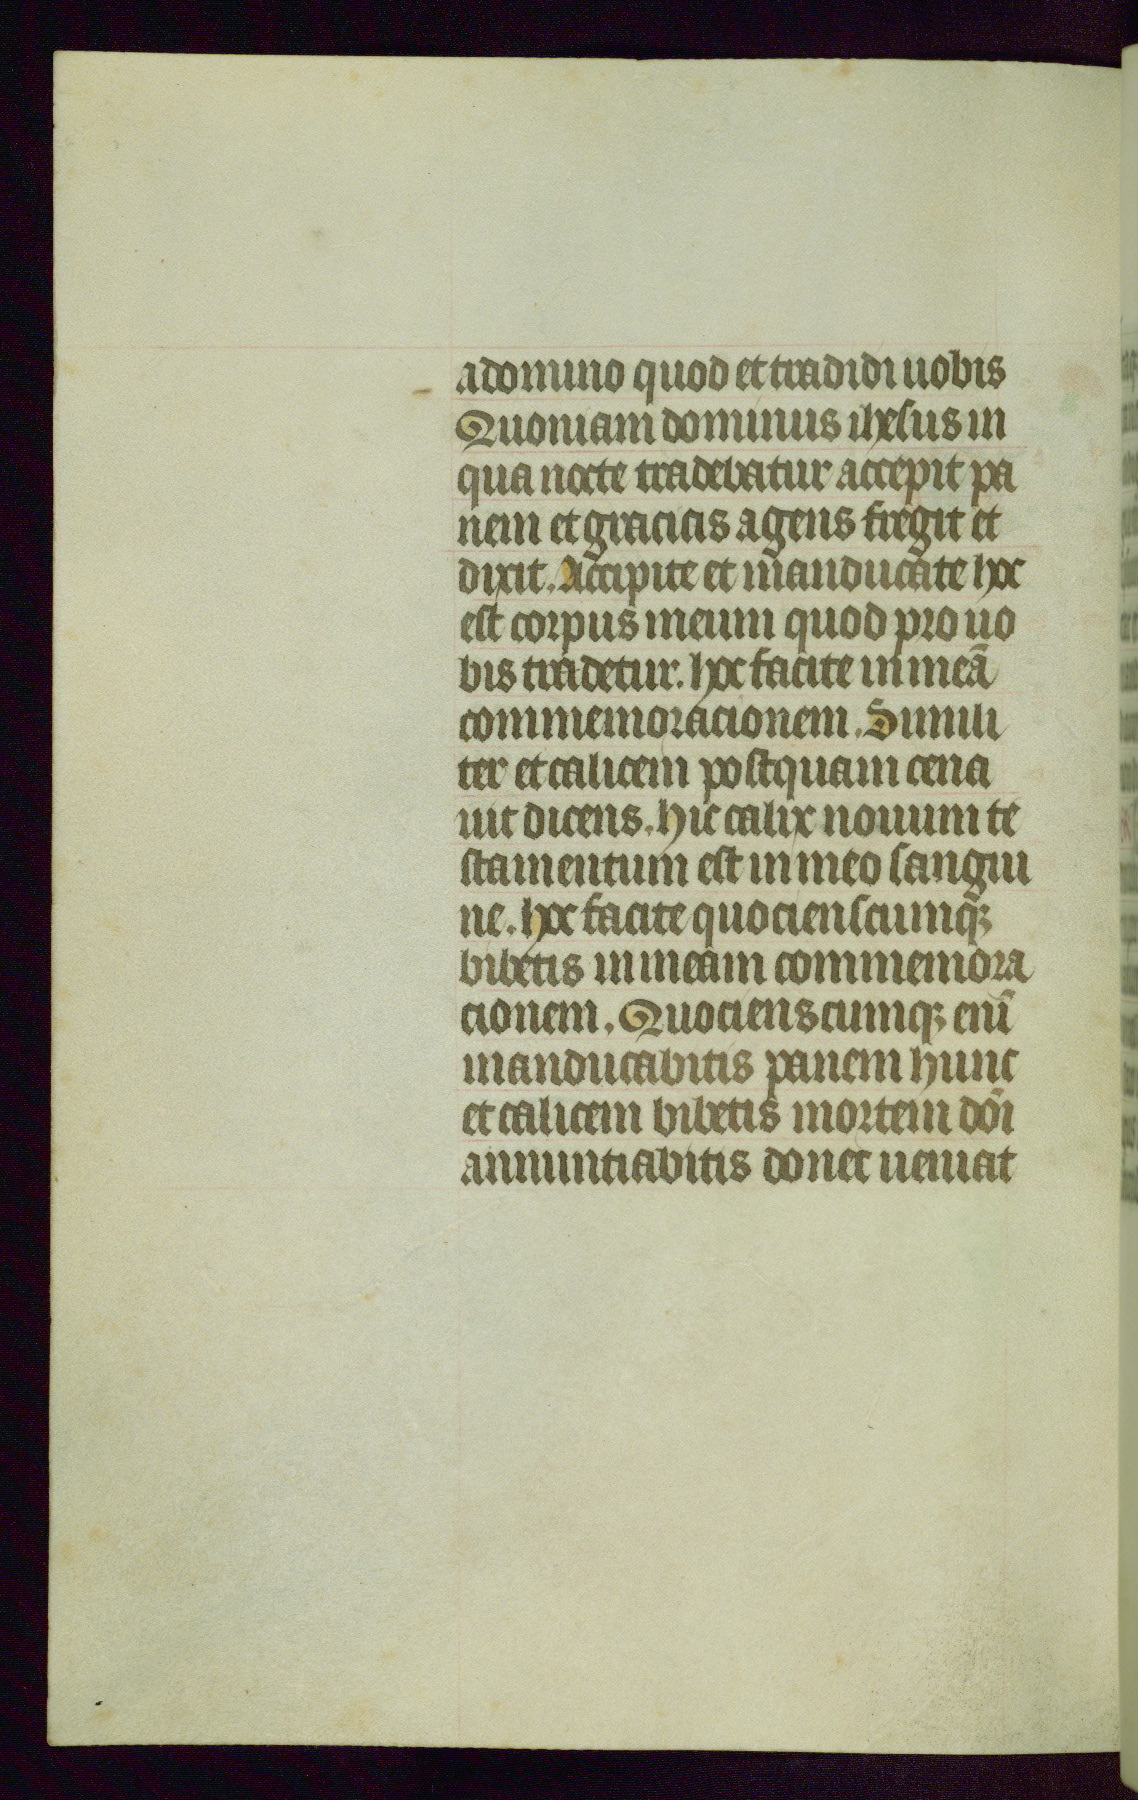 a domino quod et tradidi uobis
Quoniam dominus ihesus in
qua nocte tradebatur accepit pa
nem et gracias agens fregit et
dixit. Accipite et manducate hoc
est corpus meum quod pro uo
bis tradetur. hoc facite in meā
commemoracionem. Simili
ter et calicem postquam cena
uit dicens. hic calix nouum te
stamentum est in meo sangui
ne. hoc facite quocienscumqꝫ
bibetis in meam commemora
cionem. Quocienscumqꝫ enī
manducabitis panem hunc
et calicem bibetis mortem dōi
annuntiabitis donec ueniat